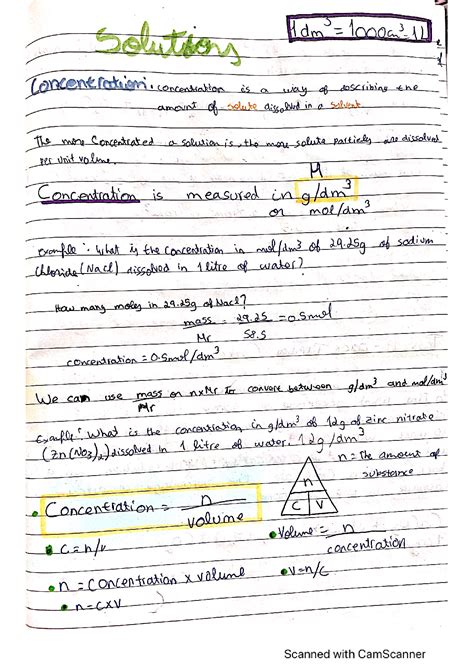 Solutions
1dm³ = 1000cm³ = 1L
Concentration: concentration is a way of describing the
amount of solute dissolved in a solvent
The more Concentrated a solution is, the more solute particles are dissolved
Per unit volume.
M
Concentration is measured in g/dm³
or mol/dm³
example: What is the concentration in mol/dm3 of 29.25g of sodium
Chloride (Nacl) dissolved in 1 litre of water?
How many moles in 29.25g of Nacl?
mass = 29.25 = 0.5mol
Mr 58.5
concentration = 0.5mol/dm³
We can use mass or nxMr to convert between g/dm³ and mol/dm³
Mr
Example: What is the concentration in g/dm³ of 12g of zinc nitrate
(Zn(NO3)2) dissolved in 1 litre of water. 12g/dm³
n = The amount of
substance
n
C V
Concentration = n
volume
Volume = n
concentration
C = n/v
v = n/c
n = Concentration x volume
n = cxv
Scanned with CamScanner